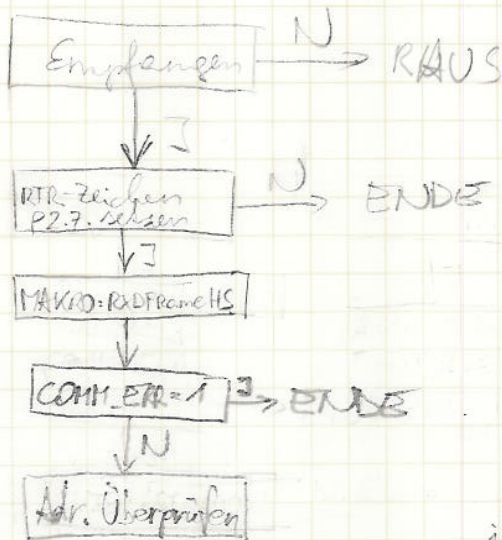 Empfangen N RAUS
J
RTR-Zeichen N ENDE
P2.7. setzen
J
MAKRO: RXDFrameHS
COMM_ERR = 1 J ENDE
N
Adr. Überprüfen